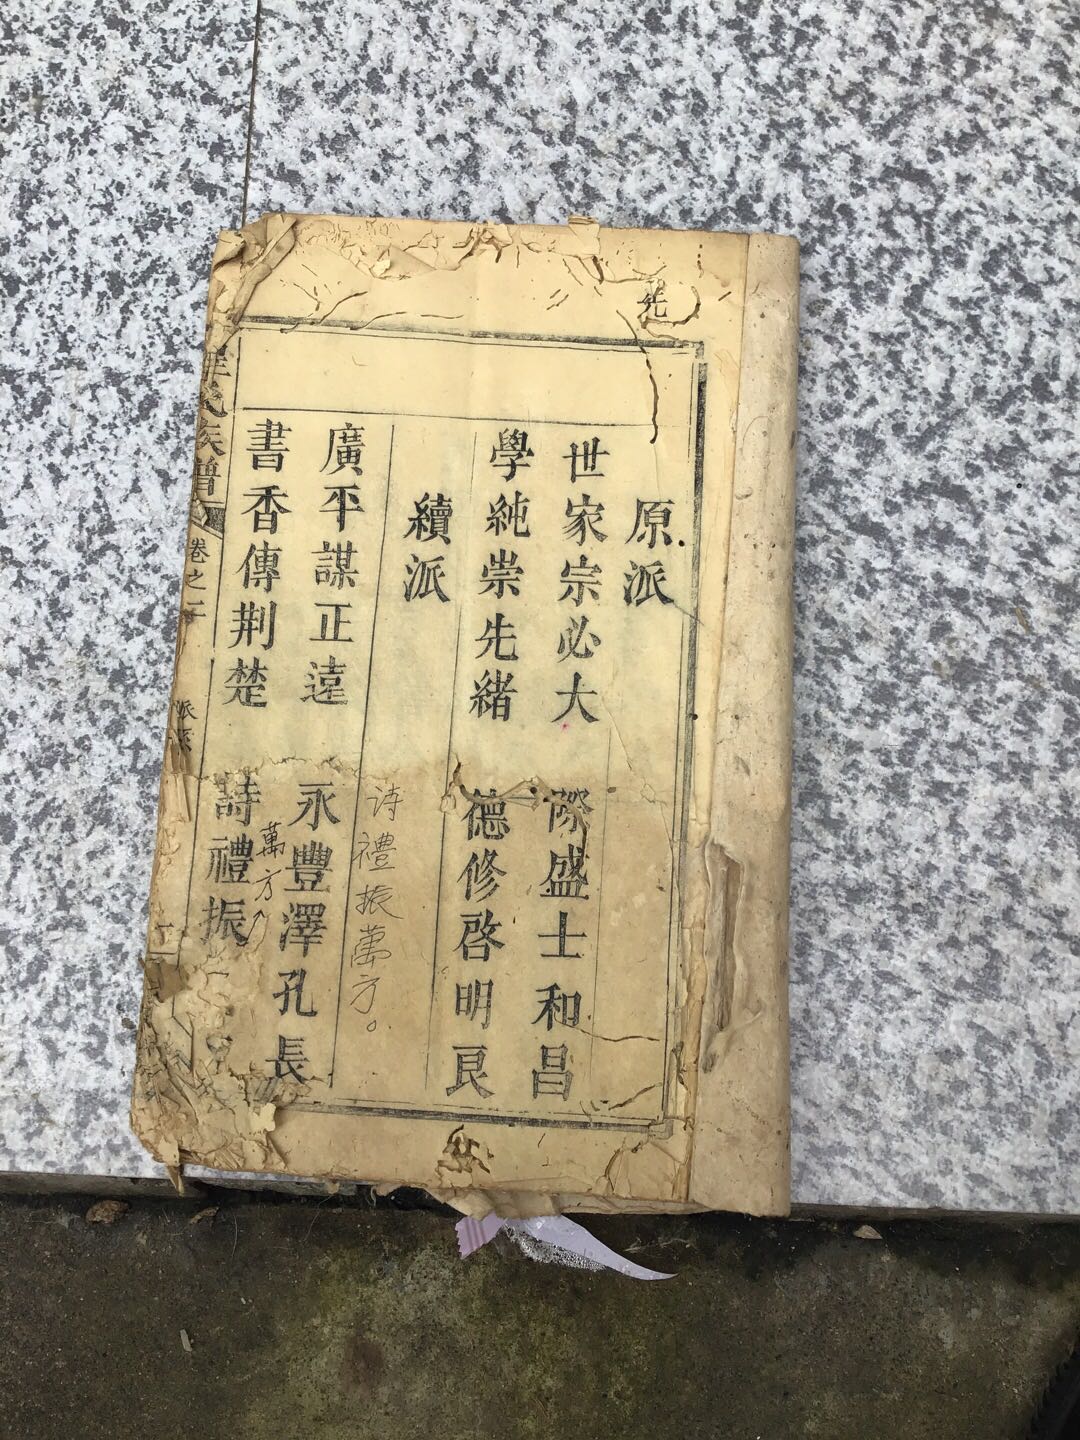 原派
世家宗必大 際盛士和昌
學純崇先緒 德修啓明良
續派
诗禮振萬方。
廣平謀正遠 永豐澤孔長
萬方
書香傳荆楚 詩禮振
氏族譜
卷之二
派系